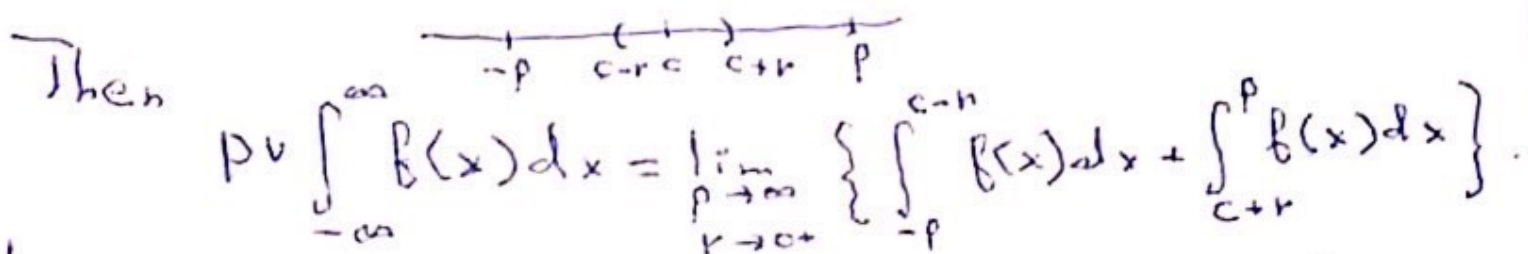 -ρ c-r c c+r ρ
Then
pv ∫_{-∞}^{∞} f(x)dx = lim_{ρ→∞, r→0+} { ∫_{-ρ}^{c-r} f(x)dx + ∫_{c+r}^{ρ} f(x)dx }.